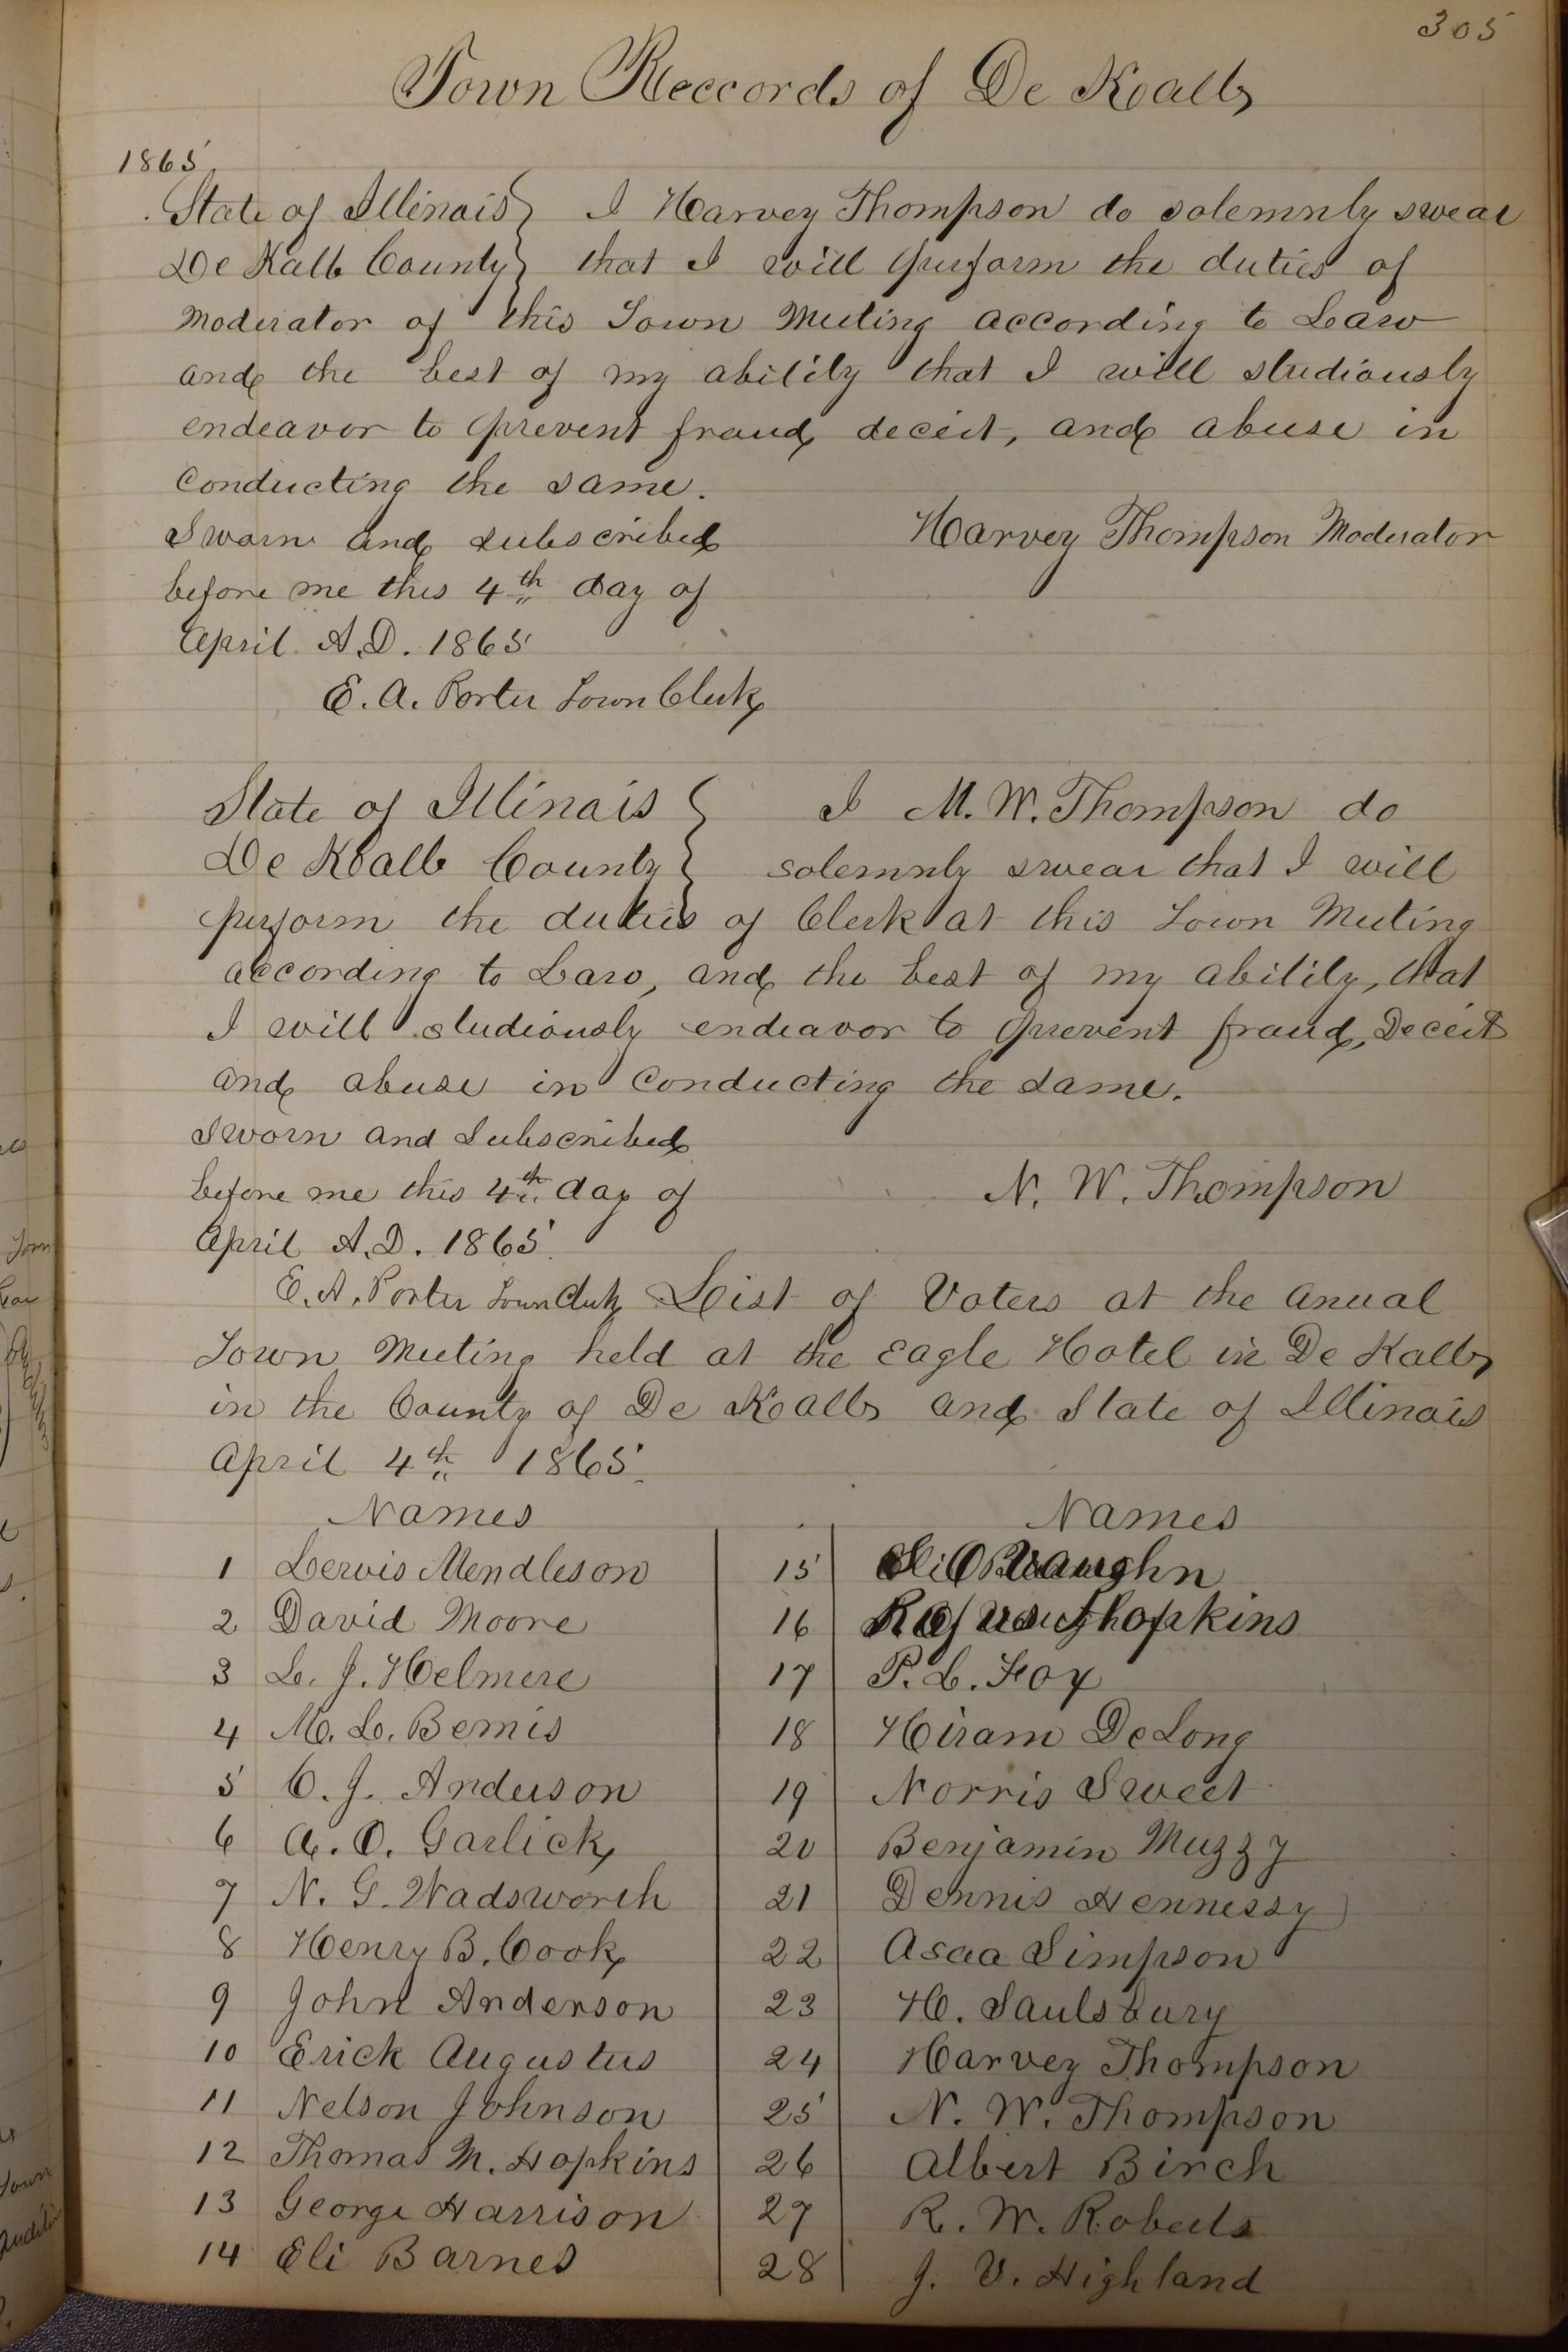 305
Town Reccords of De Kalb
1865
State of Illinois } I Harvey Thompson do solemnly swear
De Kalb County } that I will perform the duties of
Moderator of this Town Meeting according to Law
and the best of my ability that I will studiously
endeavor to prevent fraud, deceit, and abuse in
Conducting the same.
Harvey Thompson Moderator
Sworn and subscribed
before me this 4th day of
April A.D. 1865
E. A. Porter Town Clerk
State of Illinois } I M. W. Thompson do
De Kalb County } solemnly swear that I will
perform the duties of Clerk at this Town Meeting
according to Law, and the best of my ability, that
I will studiously endeavor to prevent fraud, Deceit
and abuse in Conducting the same.
Sworn and Subscribed
before me this 4th day of
N. W. Thompson
April A.D. 1865
E. A. Porter Town Clerk List of Voters at the anual
Town Meeting held at the Eagle Hotel in De Kalb
in the County of De Kalb and State of Illinois
April 4th 1865
Names
1 Lewis Mendleson
2 David Moore
3 L. J. Helmere
4 M. L. Bemis
5 C. J. Anderson
6 A. O. Garlick
7 N. G. Wadsworth
8 Henry B. Cook
9 John Anderson
10 Erick Augustus
11 Nelson Johnson
12 Thomas M. Hopkins
13 George Harrison
14 Eli Barnes
Names
15
16 Hopkins
17 P. L. Fox
18 Hiram DeLong
19 Norris Sweet
20 Benjamin Muzzy
21 Dennis Hennessy
22 Asaa Simpson
23 H. Saulsbury
24 Harvey Thompson
25 N. W. Thompson
26 Albert Birch
27 R. W. Roberts
28 J. V. Highland